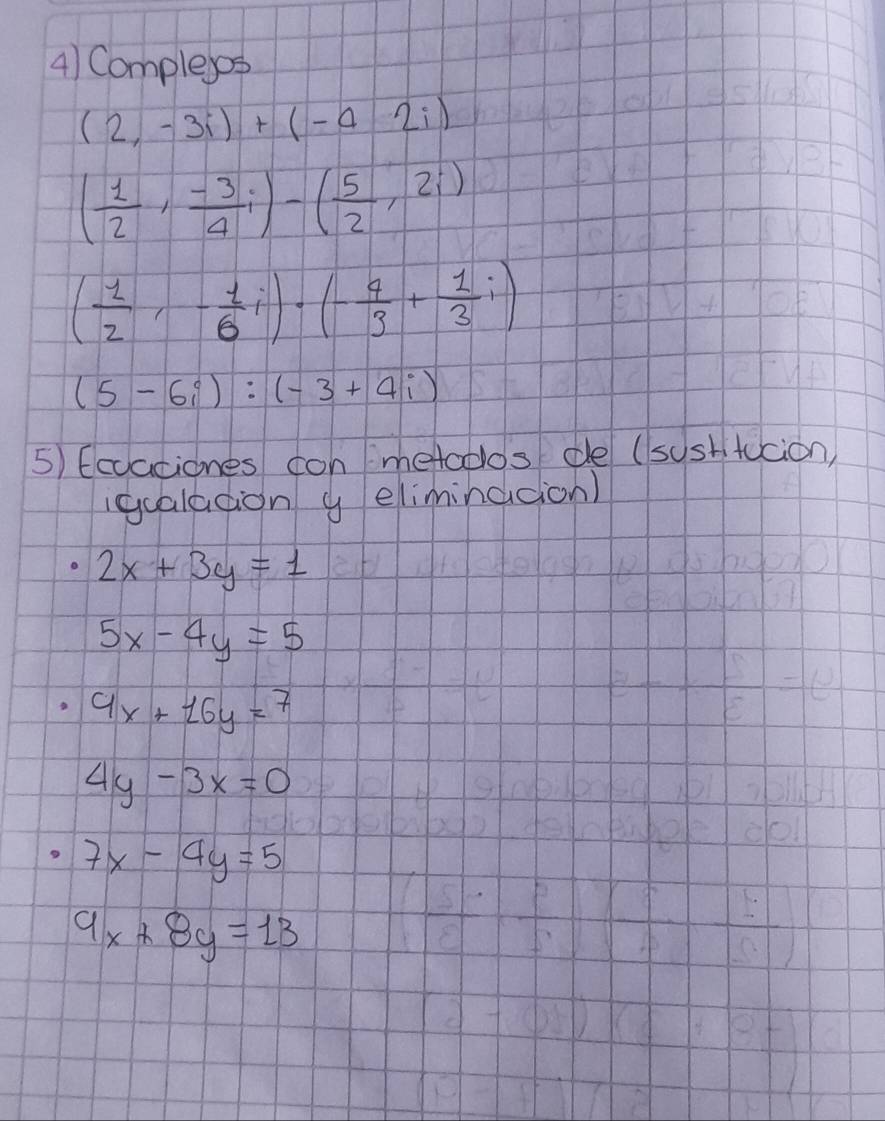 4) Complejos
(2, -3i) + (-4 2i)
(1/2, -3/4 i) - (5/2, 2i)
(1/2, -1/6 i) · (-4/3 + 1/3 i)
(5 - 6i) : (-3 + 4i)
5) Ecuaciones con metodos de (sustitucion,
igualacion y eliminacion)
• 2x + 3y = 1
5x - 4y = 5
• 9x + 16y = 7
4y - 3x = 0
• 7x - 4y = 5
9x + 8y = 13